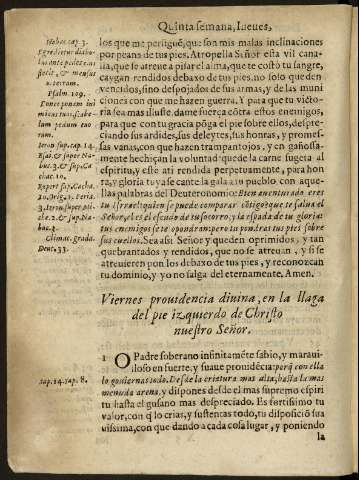 Quinta semana, Iueves,
Habac. cap. 3.
Egredietur diabo-
lus ante pedes eius
stetit, & mensus
est terram.
Psalm. 109.
Donec ponam ini
micos tuos, scabe-
lum pedum tuo
rum.
Ieron sup. cap. 14.
Esai. & super Na-
bac. 3. & sup. Ca
chac. 10.
Rupert sup. Cacha.
2. & sup. Na-
bac. 3.
Climac. grada.
Deut. 33.
sap. 14. sap. 8.
los que me persiguē, que son mis malas inclinaciones
por peans de tus pies. Atropella Señor esta vil cana-
lla, que se atreve a pisar el alma, que te costò tu sangre,
caygan rendidos debaxo de tus pies, no solo que den
vencidos, sino despojados de sus armas, y de las muni
ciones con que me hazen guerra. Y para que tu victo-
ria sea mas ilustre, dame fuerça cōtra estos enemigos,
para que con tu gracia pōga el pie sobre ellos, despre-
ciando sus ardides, sus deleytes, sus honras, y promes-
sas vanas, con que hazen trampantojos, y en gañossa-
mente hechiçan la voluntad: que de la carne sugeta al
espiritu, y este ati rendida perpetuamente, para hon
ra, y gloria tuya se cante la gala a tu pueblo con aque-
llas palabras del Deuteronomio: Bien aventurado eres
tu Israel: quien se puede comparar cōtigo: que te salva el
Señor, el es el escudo de tu socorro, y la espada de tu gloria:
tus enemigos se te opondran: pero tu pondras tus pies sobre
sus cuellos. Sea assi Señor y queden oprimidos, y tan
quebrantados y rendidos, que no se atrevan, si se
atrevieren pon los debaxo de tus pies, y reconozcan
tu dominio, y yo no salga del eternamente. Amen.
Viernes providencia divina, en la llaga
del pie izquierdo de Christo
nuestro Señor.
1 O Padre soberano infinitamēte sabio, y maravi-
lloso en fuerte, y suave providēcia: porq̄ con ella
lo governas todo. Desde la criatura mas alta, hasta la mas
menuda arena, y dispones desde el mas supremo espiri
tu hasta el gusano mas despreciado. Es fortissimo tu
valor, con q̄ lo crias, y sustentas todo, tu disposiciō sua
vissima, con que dando a cada cosa lugar, y poniendo
la